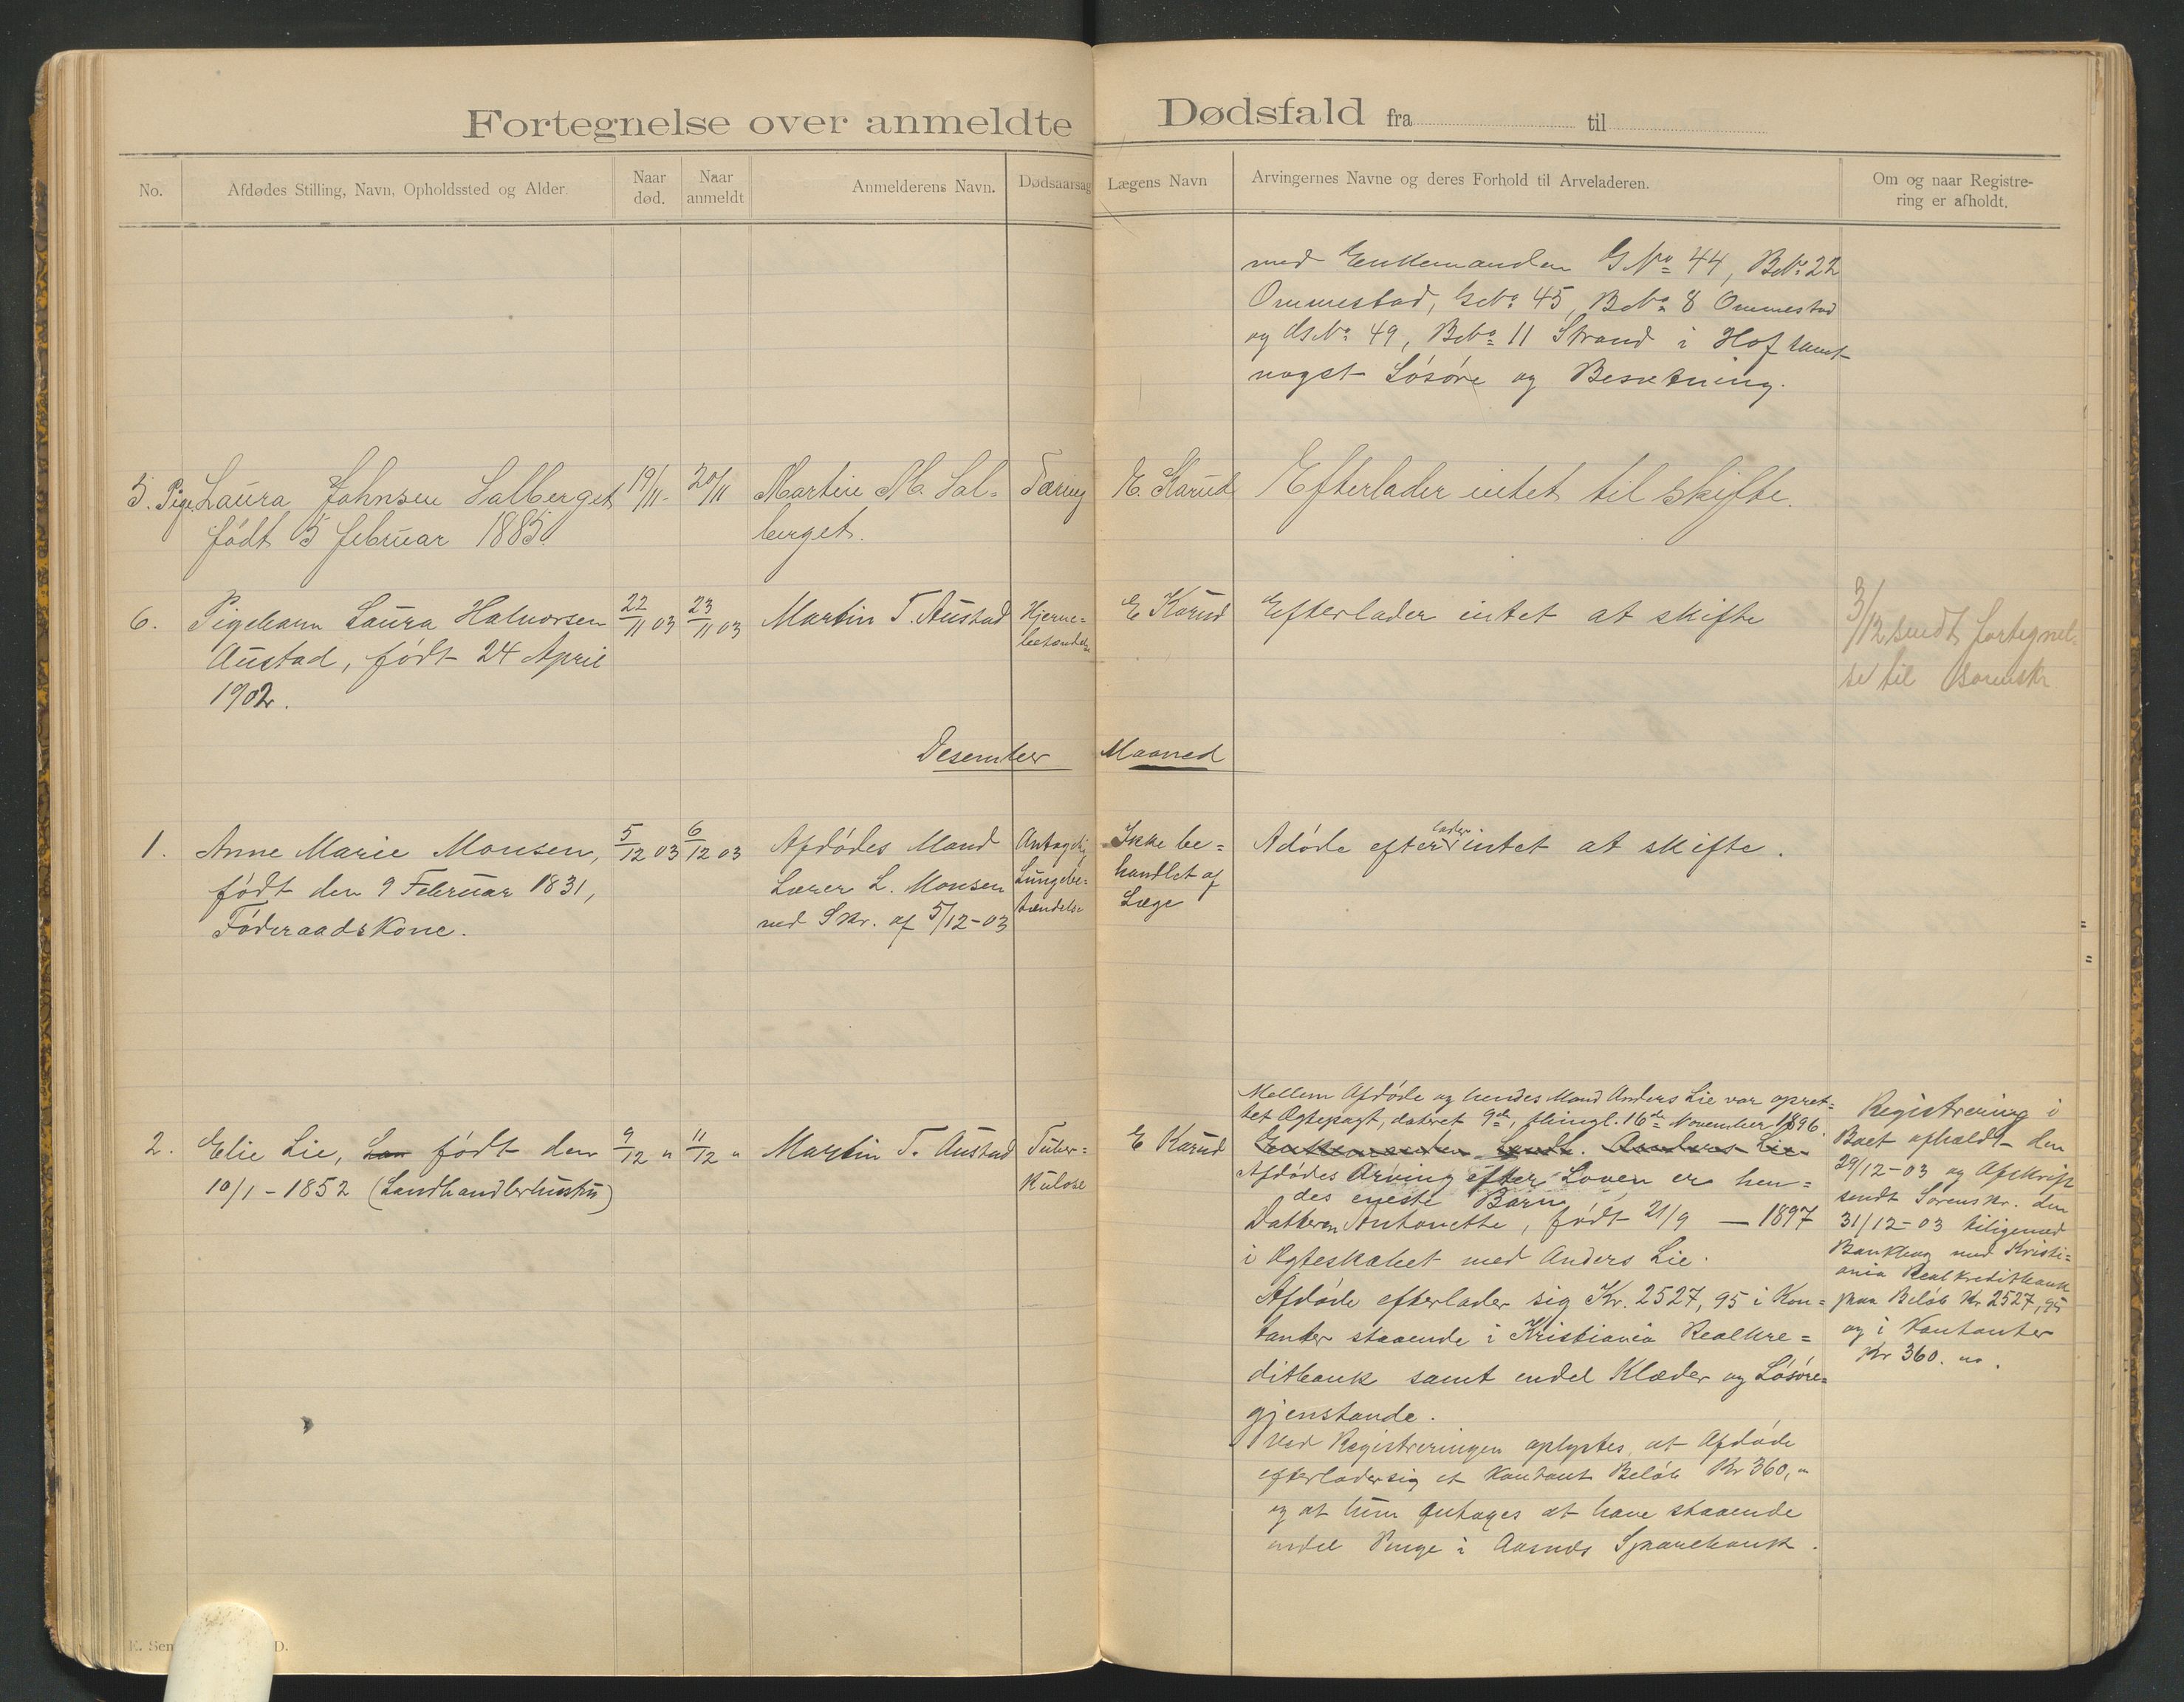 Fortegnelse over anmeldte Dødsfald fra til
No.
Afdødes Stilling, Navn, Opholdssted og Alder.
Naar
død.
Naar
anmeldt
Anmelderens Navn.
Dødsaarsag
Lægens Navn
Arvingernes Navne og deres Forhold til Arveladeren.
Om og naar Registre-
ring er afholdt.
med Enkemanden G.No 44, B.No 22
Ommestad, G.No 45, B.No 8 Ommestad
og G.No 49, B.No 11 Strand i Hof samt
noget Løsøre og Besetning.
5. Pige Laura Johnsen Salberget
født 5 februar 1885.
19/11.
20/11
Martin M. Sal-
berget.
Tæring
E. Karud
Efterlader intet til skifte.
6.
Pigebarn Laura Halvorsen
Austad, født 24 April
1902.
22/11 03
23/11 03
Martin T. Austad
Hjerne=
betændelse
E Karud
Efterlader intet at skifte
3/12 sendt fortegnel-
se til Sorenskr.
Desember Maaned
1.
Anne Marie Monsen,
født den 9 Februar 1831,
Føderaadskone.
5/12 03
6/12 03
Afdødes Mand
Lærer L. Monsen
ved Skr. af 5/12-03
Antagelig
Lungebe-
tændelse
Ikke be=
handlet af
Læge
Adøde efterlader intet at skifte.
2.
Elie Lie, født den
10/1-1852 (Landhandlerhustru)
9/12 "
11/12 "
Martin T. Austad
Tuber=
kulose
E Karud
Mellem Afdøde og hendes Mand Anders Lie var opret=
tet Ægtepagt, dateret 9de, thingl. 16de November 1896.
Enkemanden Landh. Anders Lie
Afdødes Arving efter Loven er hen=
des eneste Barn
Datteren Antonette, født 21/9 — 1897
i Ægteskabet med Anders Lie.
Afdøde efterlader sig Kr. 2527,95 i Kon=
tanter staaende i Kristiania Realkre=
ditbank samt endel Klæder og Løsøre=
gjenstande.
Ved Registreringen oplystes, at Afdøde
efterlader sig et Kontant Beløb Kr 360,"
og at hun antages at have staaende
endel Penge i Aasnes Sparebank.
Registrering i
Boet afholdt den
29/12-03 og Afskrift
sendt Sorenskr. den
31/12-03 tiligemed
Bankbog med Kristi=
ania Realkreditbank
paa Beløb Kr 2527,95
og i Kontanter
Kr 360.00.
E. Sem
D.